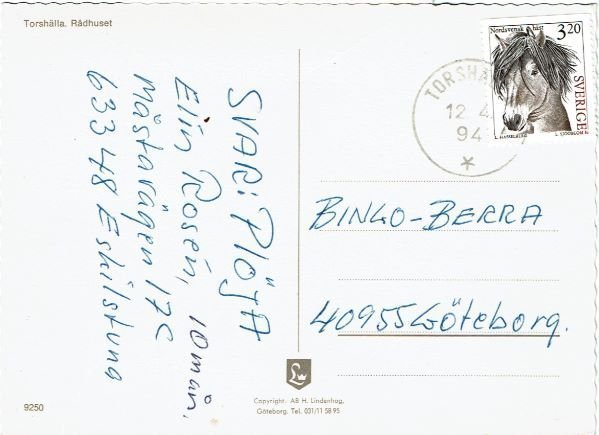 Torshälla. Rådhuset
SVAR: PLÖJA
Elin Rosén, 10 mån.
Mästavägen 17C
633 48 Eskilstuna
Nordsvensk häst
3,20
SVERIGE
L. SJÖÖBLOM
TORSHÄ
12.4.
94
BINGO-BERRA
40955 Göteborg.
Copyright. AB H. Lindenhag,
Göteborg. Tel. 031/11 58 95
9250